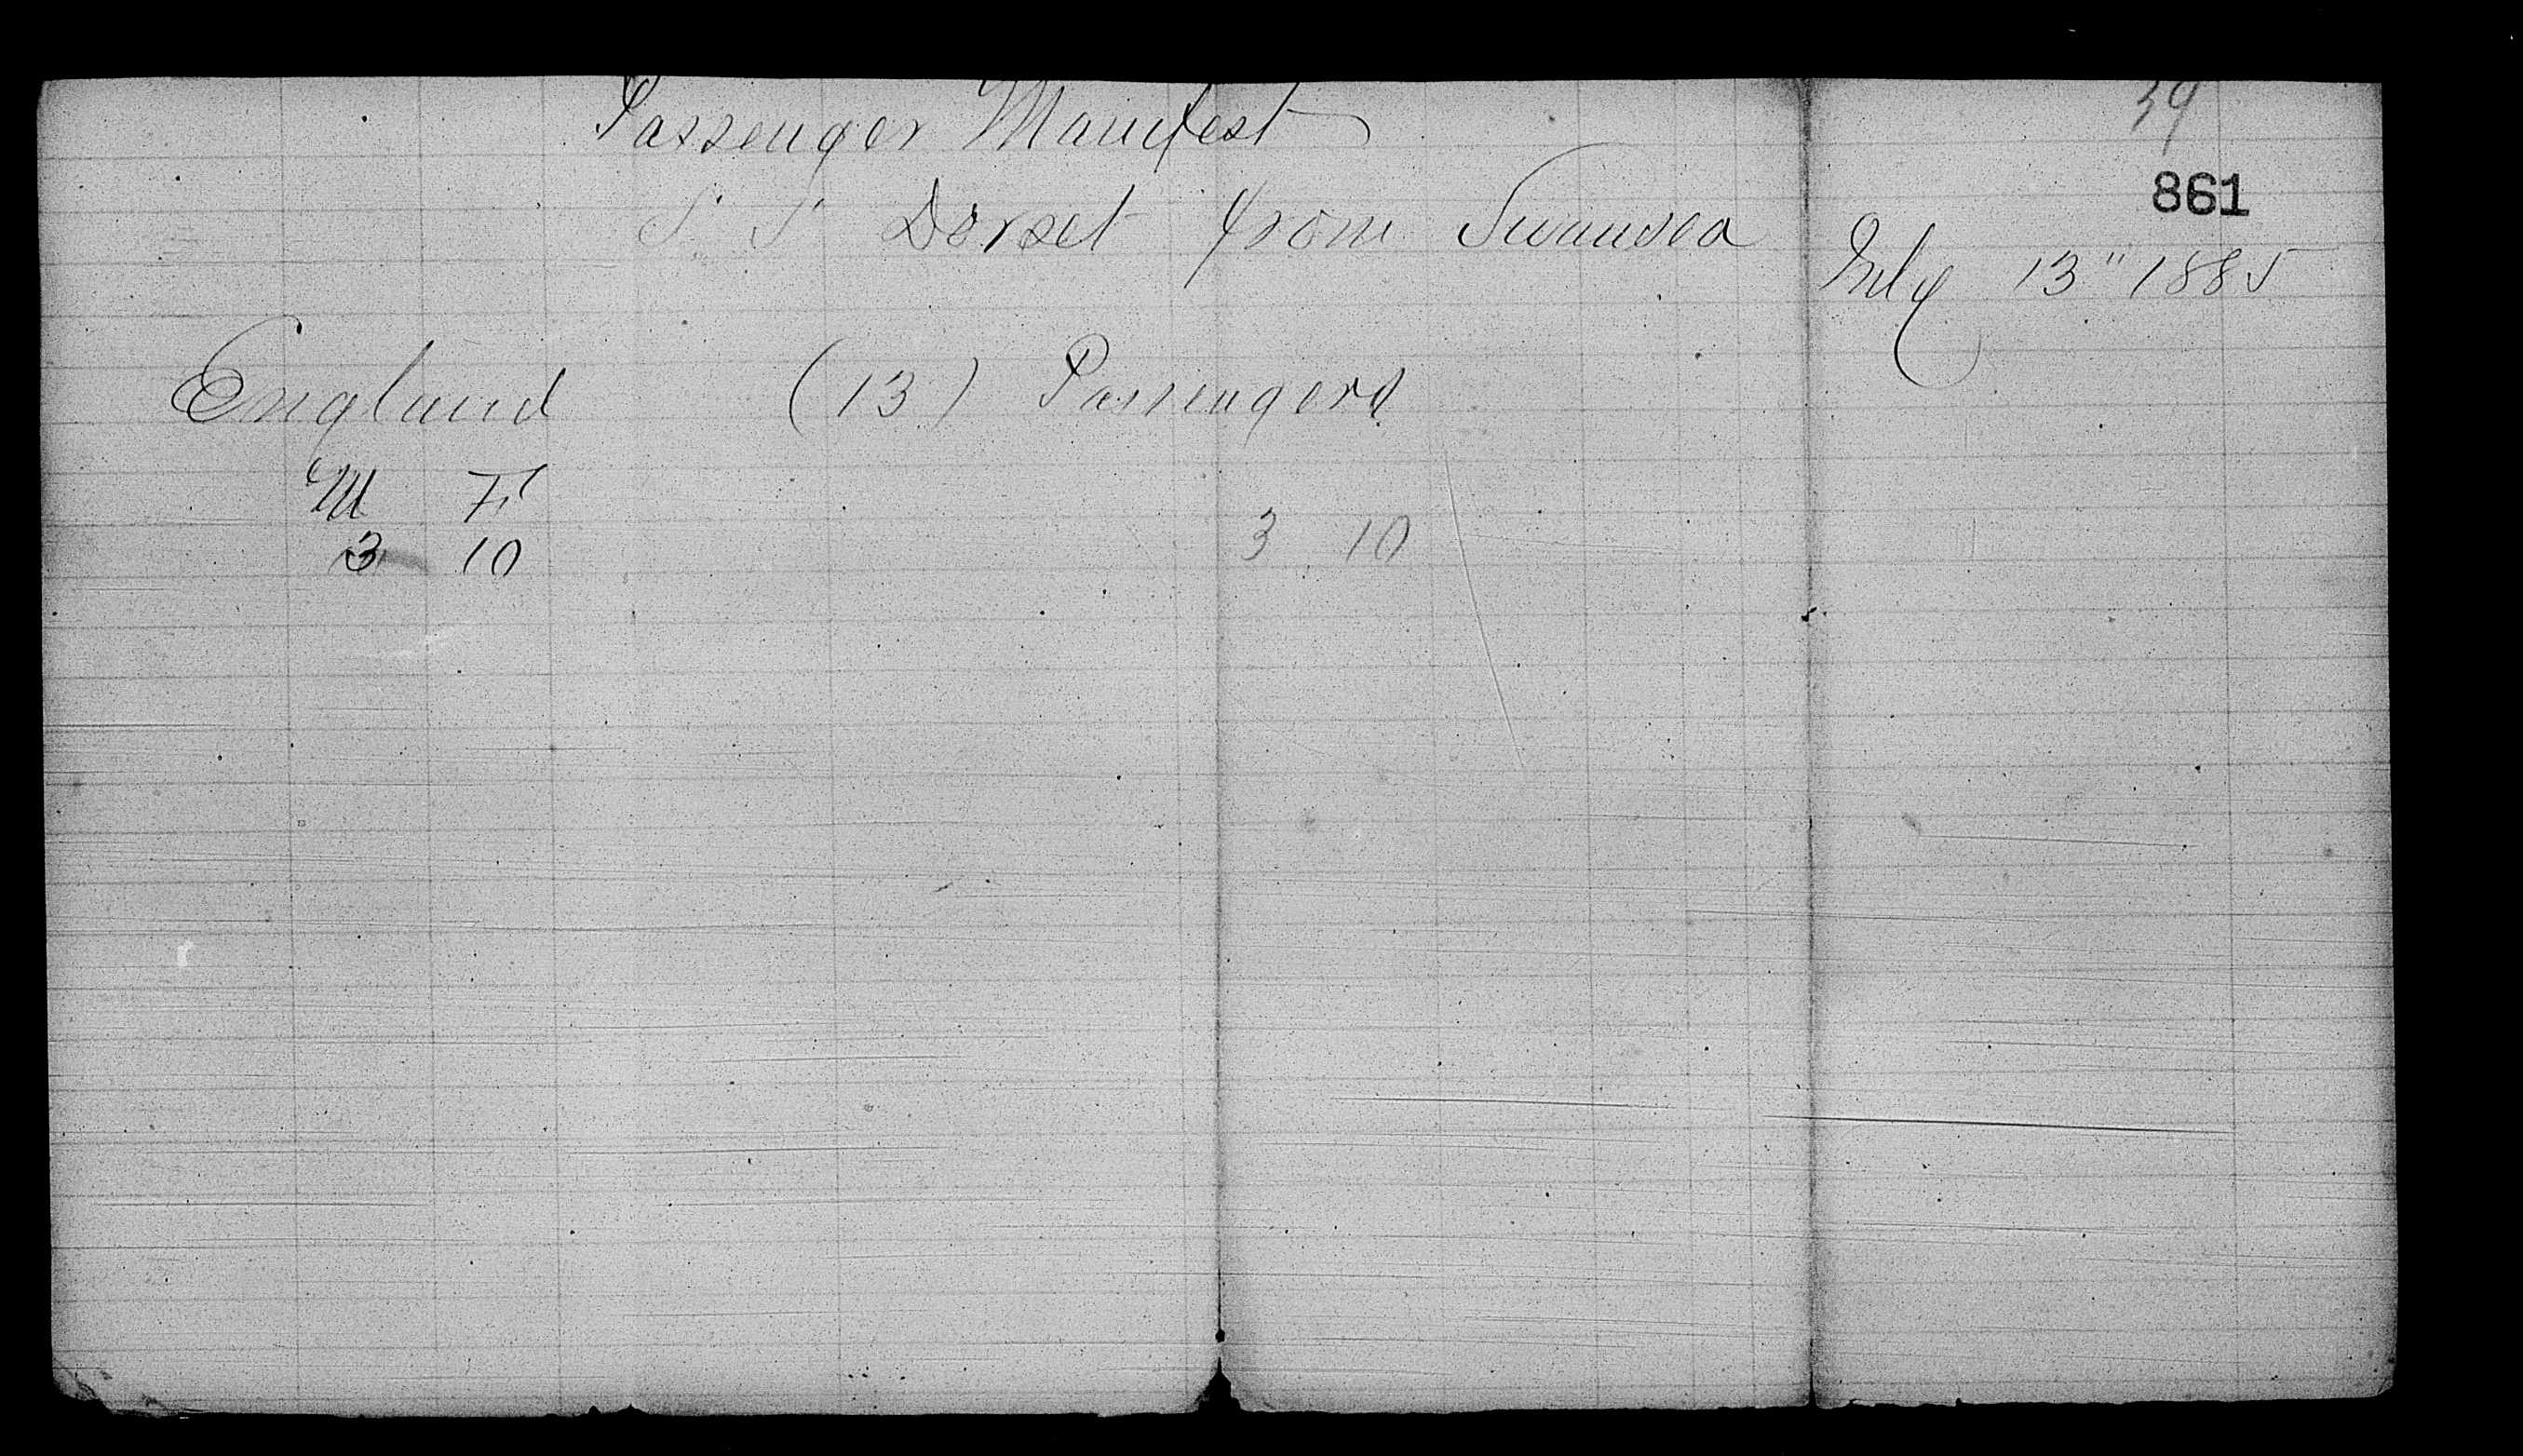 Passenger Manifest
39
861
S S Dorset from Swansea
July 13" 1885
England (13) Passengers
M F
3 10 3 10